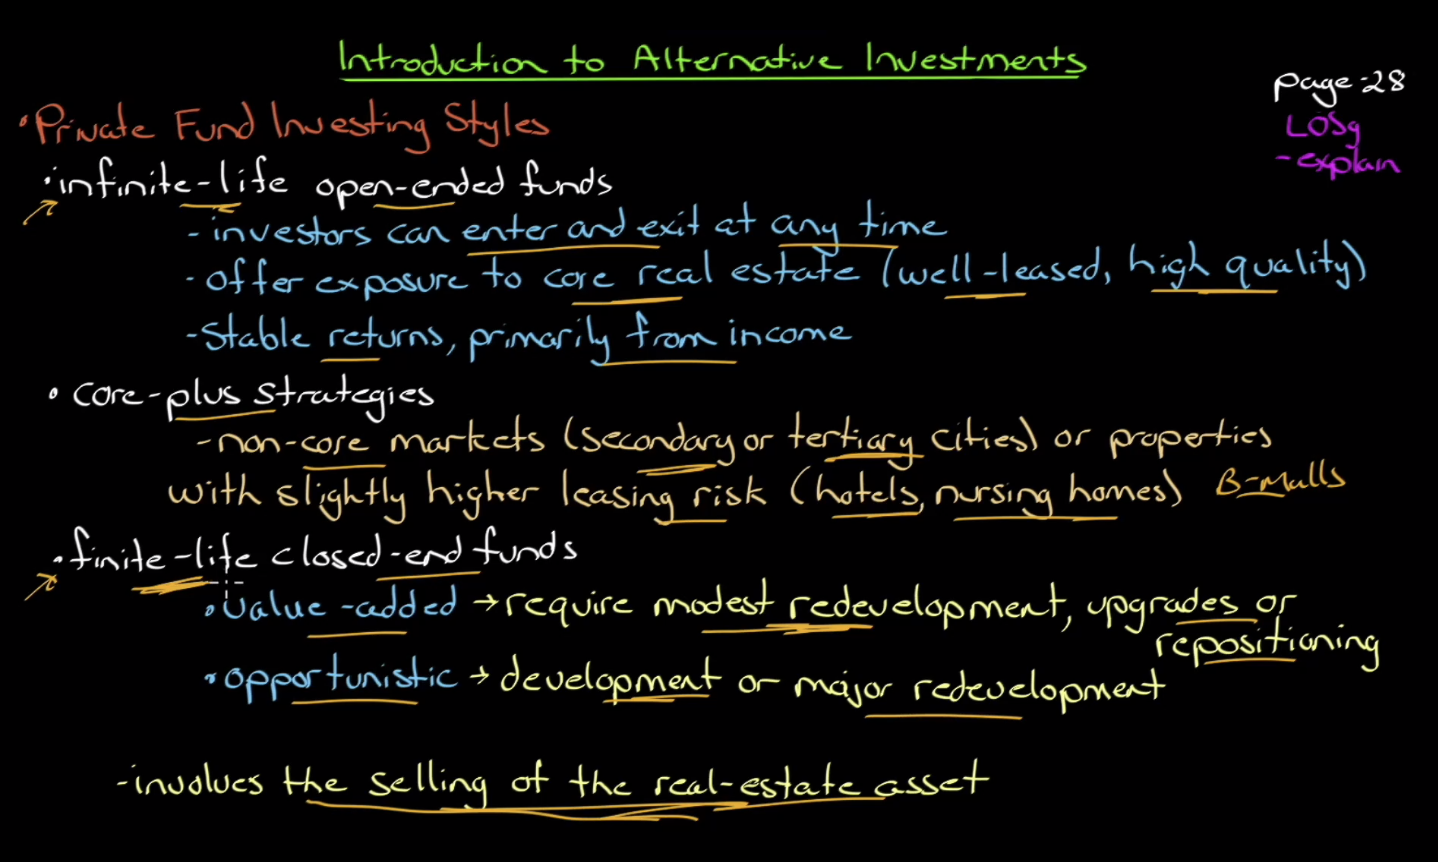 Introduction to Alternative Investments
page-28
LOSg
- explain
• Private Fund Investing Styles
• infinite-life open-ended funds
- investors can enter and exit at any time
- offer exposure to core real estate (well-leased, high quality)
- Stable returns, primarily from income
• core-plus strategies
- non-core markets (secondary or tertiary cities) or properties
with slightly higher leasing risk (hotels, nursing homes) B-Malls
• finite-life closed-end funds
• value-added → require modest redevelopment, upgrades or
repositioning
• opportunistic → development or major redevelopment
- involves the selling of the real-estate asset